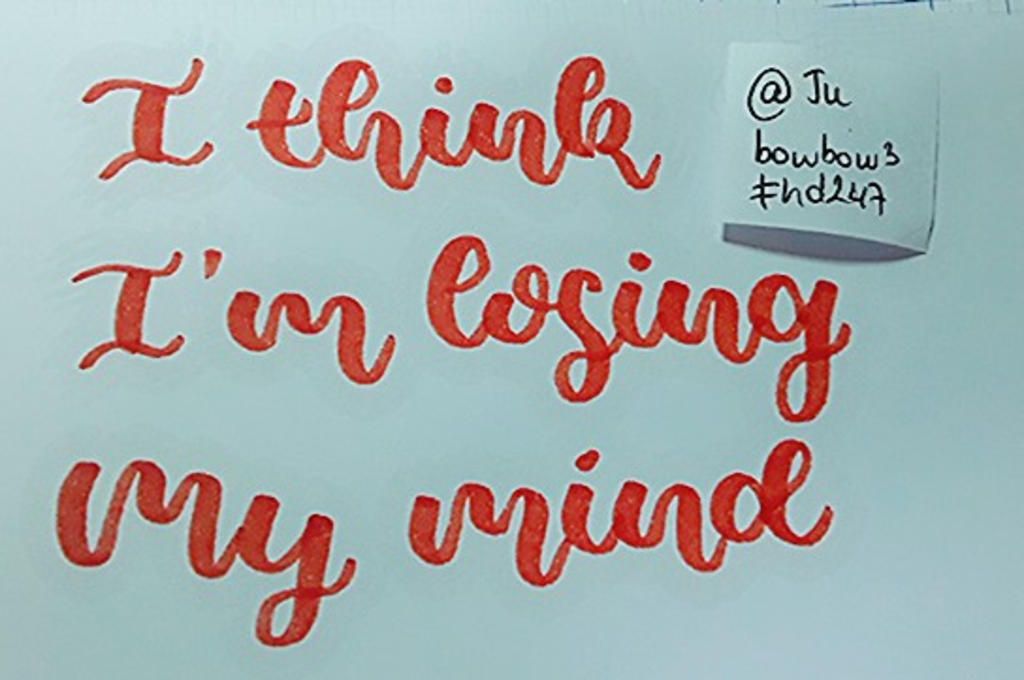 I think
I'm losing
my mind
@Ju
bowbow3
#hd247